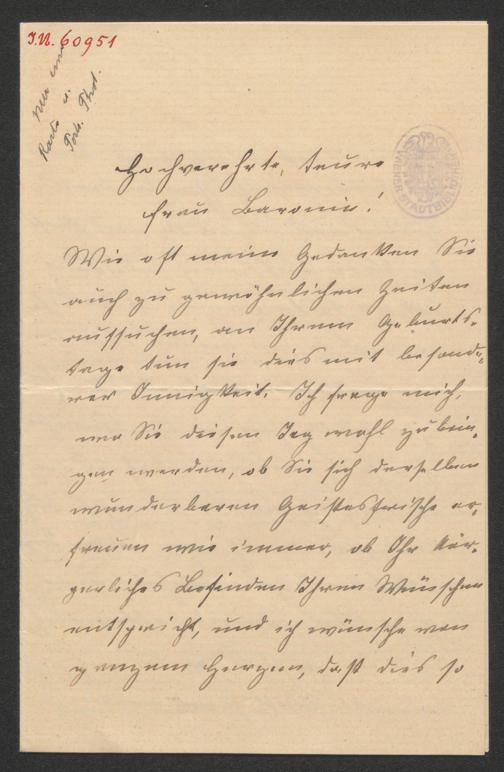 I.N. 60951
Hochverehrte, teure
Frau Baronin!
Wie oft meine Gedanken Sie
auch zu gewöhnlichen Zeiten
aufsuchen, an Ihrem Geburts-
tage tun sie dies mit besonde-
rer Innigkeit. Ich frage mich,
wo Sie diesen Tag wohl zubrin-
gen werden, ob Sie sich derselben
wunderbaren Geistesfrische er-
freuen wie immer, ob Ihr kör-
perliches Befinden Ihren Wünschen
entspricht, und ich wünsche von
ganzem Herzen, daß dies so